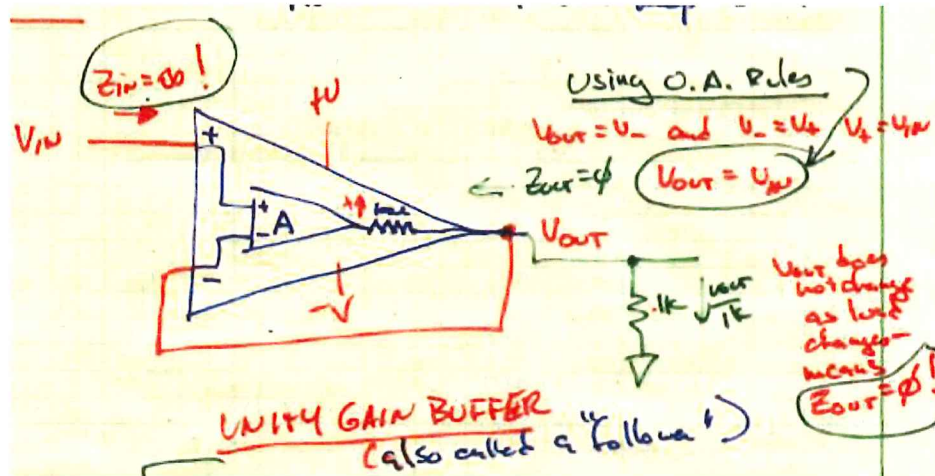 ZIN = ∞ !
Using O.A. Rules
+V
VOUT = V- and V- = V+ V+ = VIN
VIN
+
ZOUT = ϕ
VOUT = VIN
+
A
-
VOUT
-
-V
.1K
VOUT
1K
VOUT does
not change
as load
changes-
means
ZOUT = ϕ !
UNITY GAIN BUFFER
(also called a "follower")